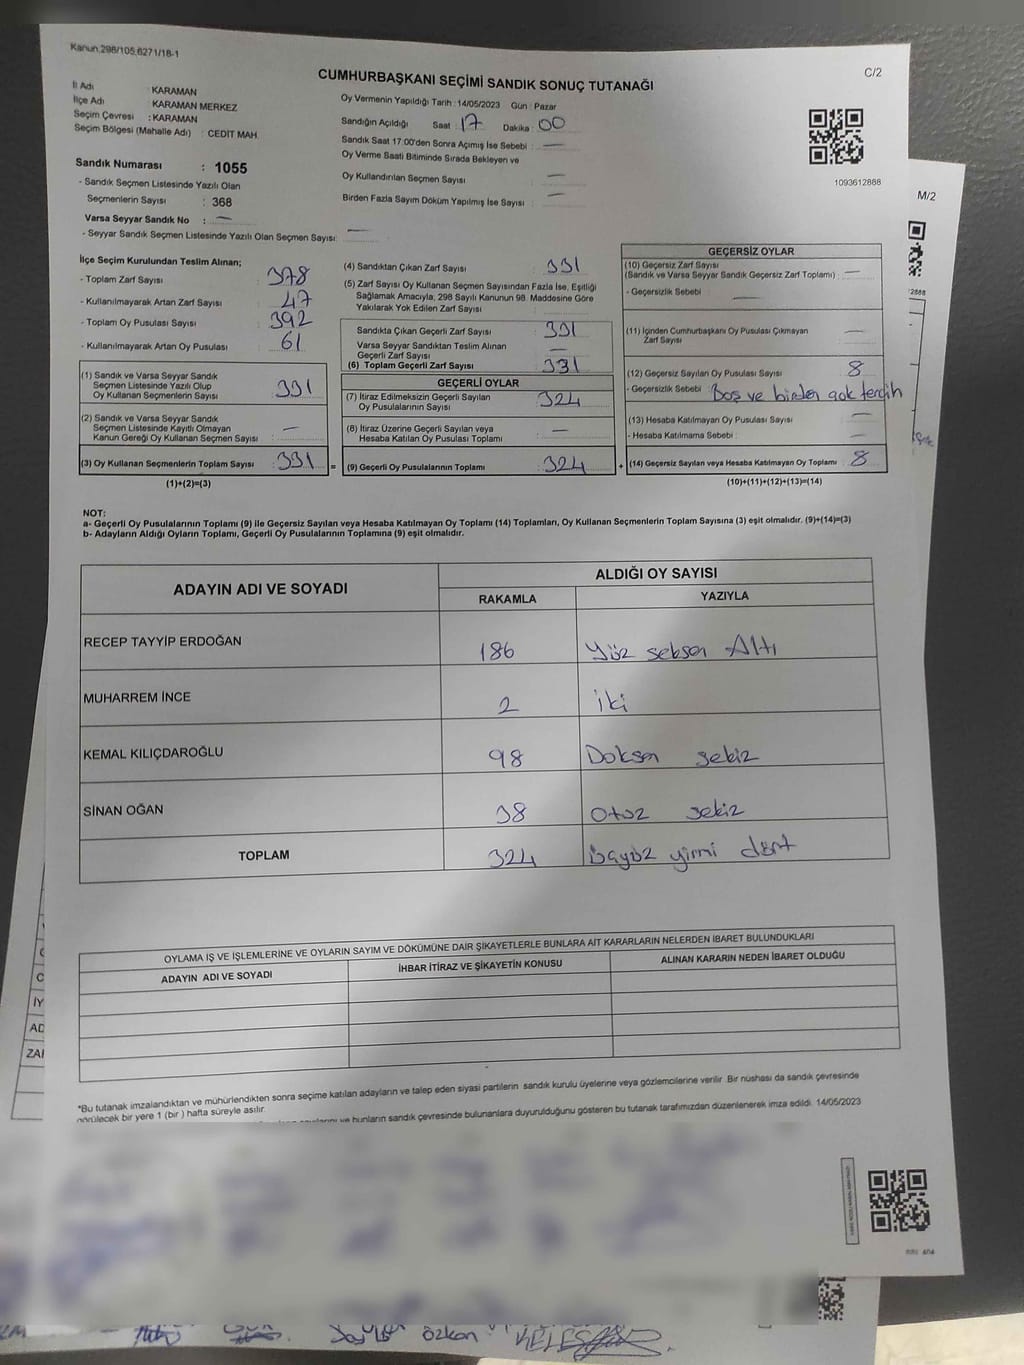 Kanun:298/105,6271/18-1
C/2
CUMHURBAŞKANI SEÇİMİ SANDIK SONUÇ TUTANAĞI
İl Adı : KARAMAN
İlçe Adı : KARAMAN MERKEZ
Seçim Çevresi : KARAMAN
Seçim Bölgesi (Mahalle Adı) : CEDİT MAH.
Sandık Numarası : 1055
- Sandık Seçmen Listesinde Yazılı Olan
Seçmenlerin Sayısı : 368
Varsa Seyyar Sandık No : —
- Seyyar Sandık Seçmen Listesinde Yazılı Olan Seçmen Sayısı: —
Oy Vermenin Yapıldığı Tarih : 14/05/2023 Gün : Pazar
Sandığın Açıldığı Saat : 17 Dakika : 00
Sandık Saat 17:00'den Sonra Açımış İse Sebebi : —
Oy Verme Saati Bitiminde Sırada Bekleyen ve
Oy Kullandırılan Seçmen Sayısı : —
Birden Fazla Sayım Döküm Yapılmış İse Sayısı : —
1093612888
M/2
İlçe Seçim Kurulundan Teslim Alınan;
- Toplam Zarf Sayısı : 378
- Kullanılmayarak Artan Zarf Sayısı : 47
- Toplam Oy Pusulası Sayısı : 392
- Kullanılmayarak Artan Oy Pusulası : 61
(1) Sandık ve Varsa Seyyar Sandık
Seçmen Listesinde Yazılı Olup
Oy Kullanan Seçmenlerin Sayısı : 331
(2) Sandık ve Varsa Seyyar Sandık
Seçmen Listesinde Kayıtlı Olmayan
Kanun Gereği Oy Kullanan Seçmen Sayısı : —
(3) Oy Kullanan Seçmenlerin Toplam Sayısı : 331 =
(1)+(2)=(3)
(4) Sandıktan Çıkan Zarf Sayısı : 331
(5) Zarf Sayısı Oy Kullanan Seçmen Sayısından Fazla İse, Eşitliği
Sağlamak Amacıyla, 298 Sayılı Kanunun 98. Maddesine Göre
Yakılarak Yok Edilen Zarf Sayısı :
Sandıkta Çıkan Geçerli Zarf Sayısı : 331
Varsa Seyyar Sandıktan Teslim Alınan
Geçerli Zarf Sayısı : —
(6) Toplam Geçerli Zarf Sayısı : 331
GEÇERLİ OYLAR
(7) İtiraz Edilmeksizin Geçerli Sayılan
Oy Pusulalarının Sayısı : 324
(8) İtiraz Üzerine Geçerli Sayılan veya
Hesaba Katılan Oy Pusulası Toplamı : —
(9) Geçerli Oy Pusulalarının Toplamı : 324 +
GEÇERSİZ OYLAR
(10) Geçersiz Zarf Sayısı
(Sandık ve Varsa Seyyar Sandık Geçersiz Zarf Toplamı) : —
- Geçersizlik Sebebi : —
(11) İçinden Cumhurbaşkanı Oy Pusulası Çıkmayan
Zarf Sayısı : —
(12) Geçersiz Sayılan Oy Pusulası Sayısı : 8
- Geçersizlik Sebebi : Boş ve birden çok tercih
(13) Hesaba Katılmayan Oy Pusulası Sayısı : —
- Hesaba Katılmama Sebebi : —
(14) Geçersiz Sayılan veya Hesaba Katılmayan Oy Toplamı : 8
(10)+(11)+(12)+(13)=(14)
NOT:
a- Geçerli Oy Pusulalarının Toplamı (9) ile Geçersiz Sayılan veya Hesaba Katılmayan Oy Toplamı (14) Toplamları, Oy Kullanan Seçmenlerin Toplam Sayısına (3) eşit olmalıdır. (9)+(14)=(3)
b- Adayların Aldığı Oyların Toplamı, Geçerli Oy Pusulalarının Toplamına (9) eşit olmalıdır.
ADAYIN ADI VE SOYADI
ALDIĞI OY SAYISI
RAKAMLA YAZIYLA
RECEP TAYYİP ERDOĞAN 186 Yüz seksen Altı
MUHARREM İNCE 2 iki
KEMAL KILIÇDAROĞLU 98 Doksan sekiz
SİNAN OĞAN 38 Otuz sekiz
TOPLAM 324 üçyüz yirmi dört
OYLAMA İŞ VE İŞLEMLERİNE VE OYLARIN SAYIM VE DÖKÜMÜNE DAİR ŞİKAYETLERLE BUNLARA AİT KARARLARIN NELERDEN İBARET BULUNDUKLARI
ADAYIN ADI VE SOYADI İHBAR İTİRAZ VE ŞİKAYETİN KONUSU ALINAN KARARIN NEDEN İBARET OLDUĞU
*Bu tutanak imzalandıktan ve mühürlendikten sonra seçime katılan adayların ve talep eden siyasi partilerin sandık kurulu üyelerine veya gözlemcilerine verilir. Bir nüshası da sandık çevresinde
görülecek bir yere 1 (bir ) hafta süreyle asılır.
ve bunların sandık çevresinde bulunanlara duyurulduğunu gösteren bu tutanak tarafımızdan düzenlenerek imza edildi. 14/05/2023
özkan
KELEŞ